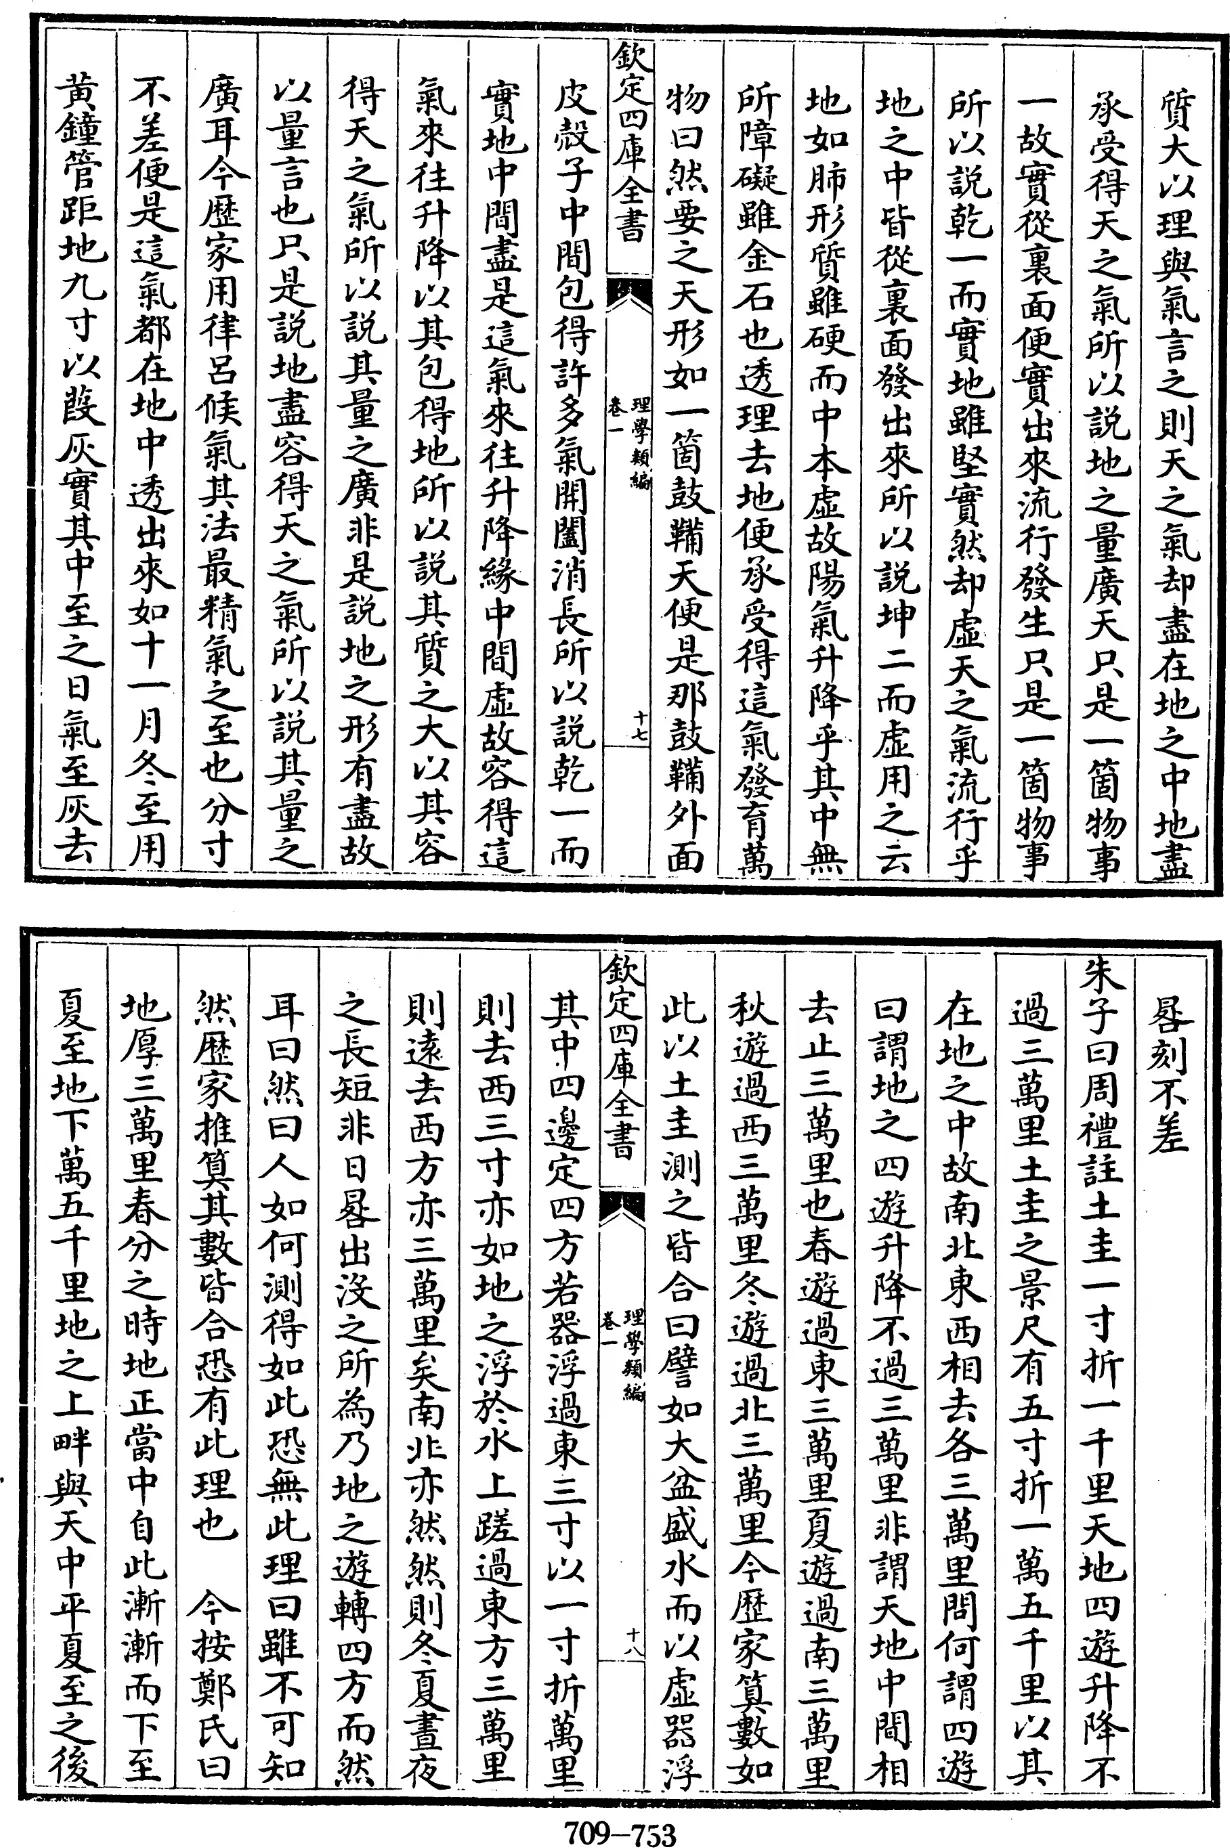 質大以理與氣言之則天之氣却盡在地之中地盡
承受得天之氣所以説地之量廣天只是一箇物事
一故實從裏面便實出來流行發生只是一箇物事
所以説乾一而實地雖堅實然却虛天之氣流行乎
地之中皆從裏面發出來所以説坤二而虛用之云
地如肺形質雖硬而中本虛故陽氣升降乎其中無
所障礙雖金石也透理去地便承受得這氣發育萬
物曰然要之天形如一箇鼓鞴天便是那鼓鞴外面
欽定四庫全書
理學類編
卷一
十七
皮殻子中間包得許多氣開闔消長所以説乾一而
實地中間盡是這氣來往升降緣中間虛故容得這
氣來往升降以其包得地所以説其質之大以其容
得天之氣所以説其量之廣非是説地之形有盡故
以量言也只是説地盡容得天之氣所以説其量之
廣耳今歴家用律呂候氣其法最精氣之至也分寸
不差便是這氣都在地中透出來如十一月冬至用
黄鐘管距地九寸以葭灰實其中至之日氣至灰去
晷刻不差
朱子曰周禮註土圭一寸折一千里天地四遊升降不
過三萬里土圭之景尺有五寸折一萬五千里以其
在地之中故南北東西相去各三萬里問何謂四遊
曰謂地之四遊升降不過三萬里非謂天地中間相
去止三萬里也春遊過東三萬里夏遊過南三萬里
秋遊過西三萬里冬遊過北三萬里今歴家算數如
此以土圭測之皆合曰譬如大盆盛水而以虛器浮
欽定四庫全書
理學類編
卷一
十八
其中四邊定四方若器浮過東三寸以一寸折萬里
則去西三寸亦如地之浮於水上蹉過東方三萬里
則逺去西方亦三萬里矣南北亦然然則冬夏晝夜
之長短非日晷出沒之所為乃地之遊轉四方而然
耳曰然曰人如何測得如此恐無此理曰雖不可知
然歴家推算其數皆合恐有此理也 今按鄭氏曰
地厚三萬里春分之時地正當中自此漸漸而下至
夏至地下萬五千里地之上畔與天中平夏至之後
709-753